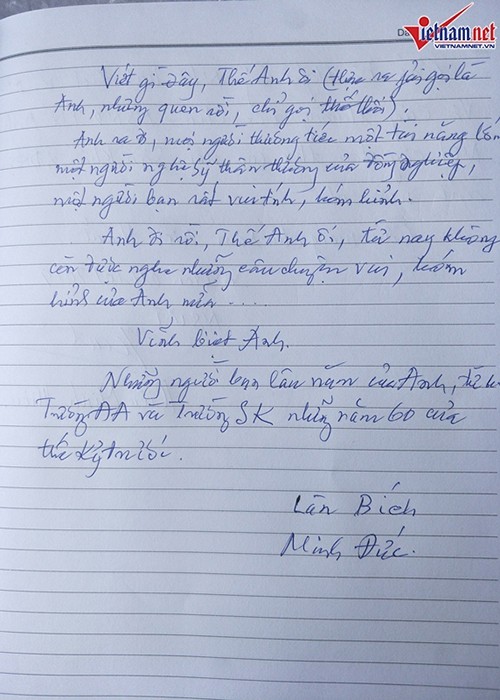 vietnamnet
VIETNAMNET.VN
Da
Viết gì đây, Thế Anh ơi (thưa ra phải gọi là
Anh, nhưng quen rồi, chỉ gọi thế thôi).
Anh ra đi, mọi người thương tiếc một tài năng lớn
một người nghệ sỹ thân thương của đồng nghiệp,
một người bạn rất vui tính, hóm hỉnh.
Anh đi rồi, Thế Anh ơi, từ nay không
còn được nghe những câu chuyện vui, hóm
hỉnh của Anh nữa ....
Vĩnh biệt Anh.
Những người bạn lâu năm của Anh, từ
Trường ĐA và Trường SK những năm 60 của
thế kỷ trước.
Lân Bích
Minh Đức.